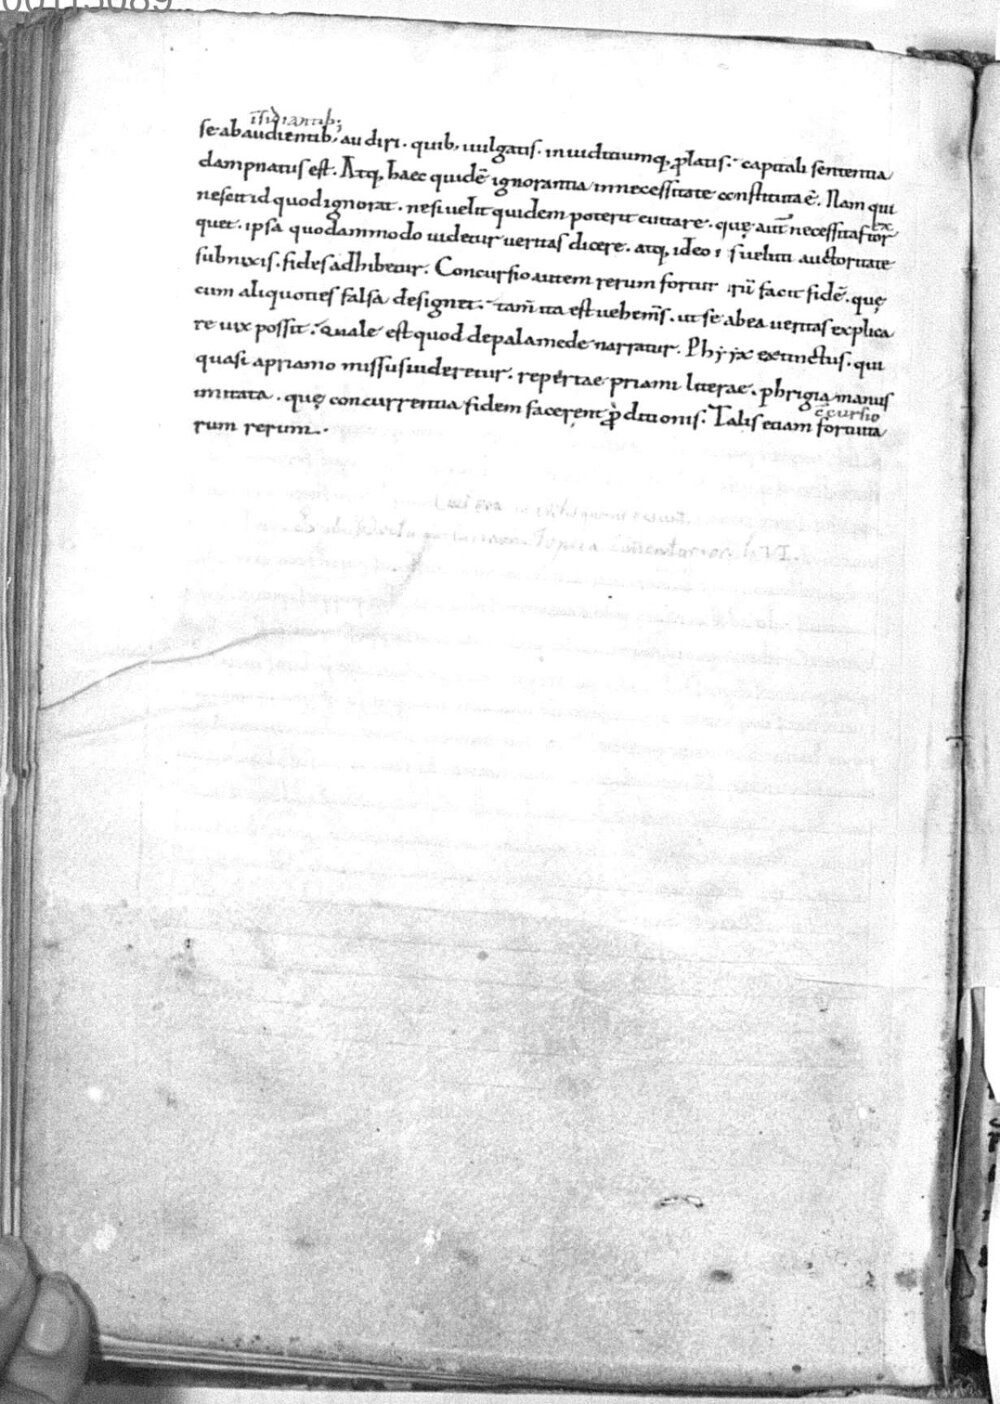 īsidiantib;
se ab audientib; audiri. quib; uulgatis. in iuditiumq; platis. capitali sententia
dampnatus est. Atq; haec quidē ignorantia in necessitate constituta ē. Nam qui
nescit id quod ignorat. nesi uelit quidem poterit euitare. quę aut̄ necessitas ex
torquet. ipsa quodammodo uidetur ueritas dicere. atq; ideo si uelut auctoritate
subnixis. fides adhibetur. Concursio autem rerum fortuitarū facit fidē. quę
cum aliquoties falsa designet. tam̄ ita est uehem̄s. ut se ab ea ueritas explica
re uix possit. Quale est quod de palamede narratur. Phryx extinctus. qui
quasi a priamo missus uideretur. repertae priami literae. phrigia manus
imitata. quę concurrentia fidem facerent pditionis. Talis etiam c̄cursio fortuita
rum rerum.
Topica Comentarior. L. VI.